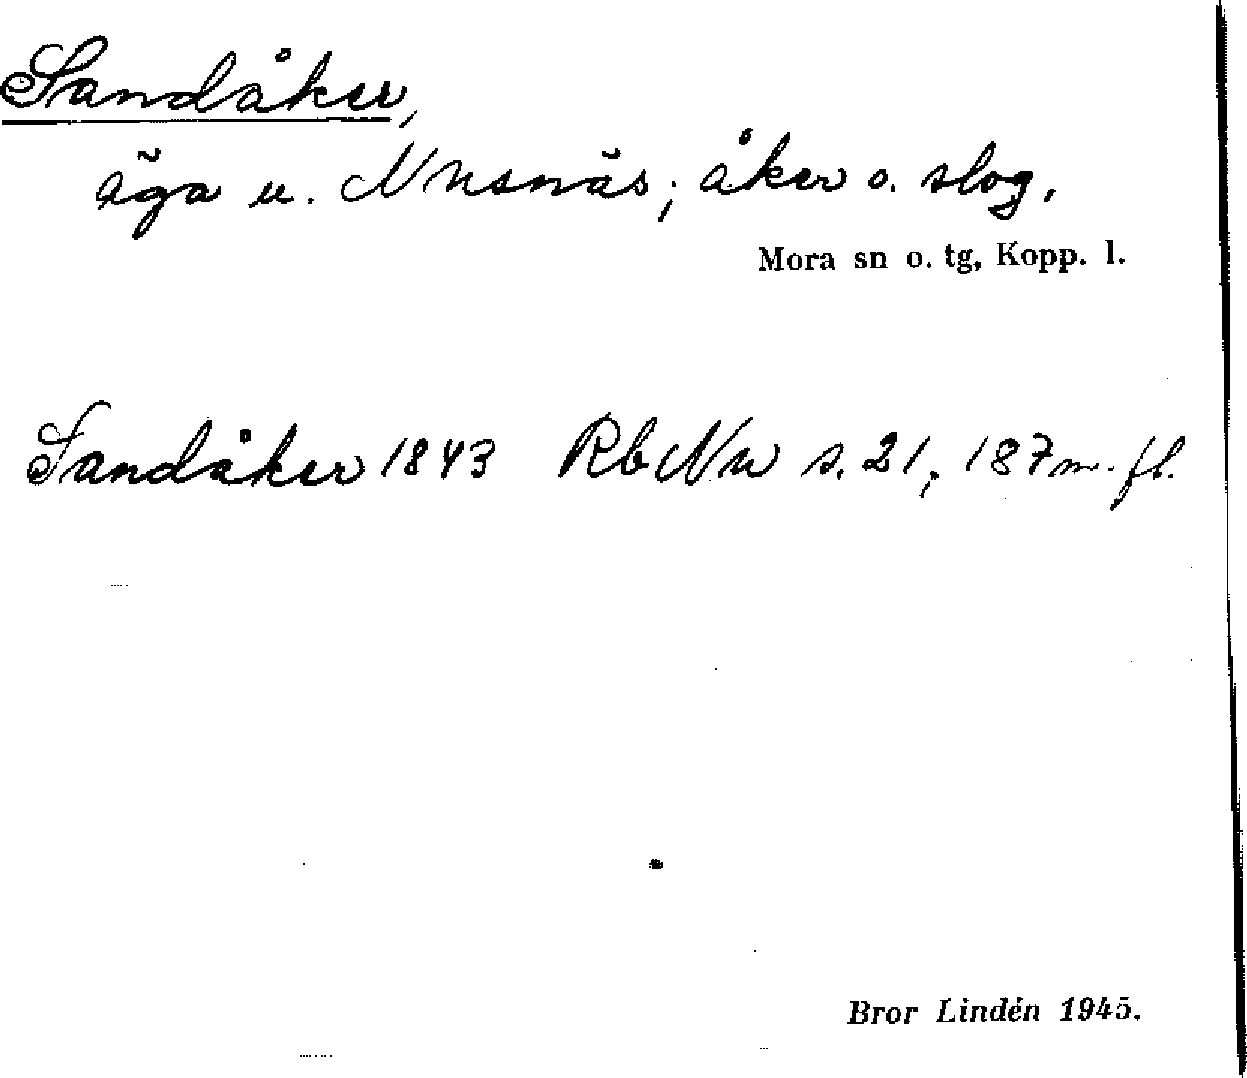 Sandåker,
äga u. Nusnäs; åker o. slog.
Mora sn o. tg, Kopp. l.
Sandåker 1843 RbNu s. 21, 187 m. fl.
Bror Lindén 1945.